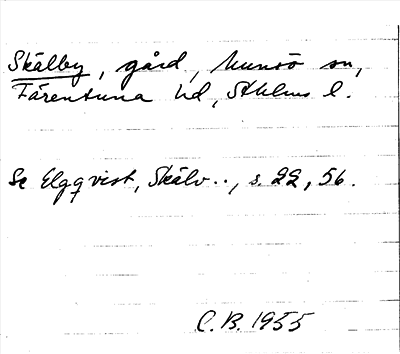 Skälby, gård, Munsö sn,
Färentuna hd, Sthlms l.
Se Elgqvist, Skälv.., s. 22, 56.
C. B. 1955